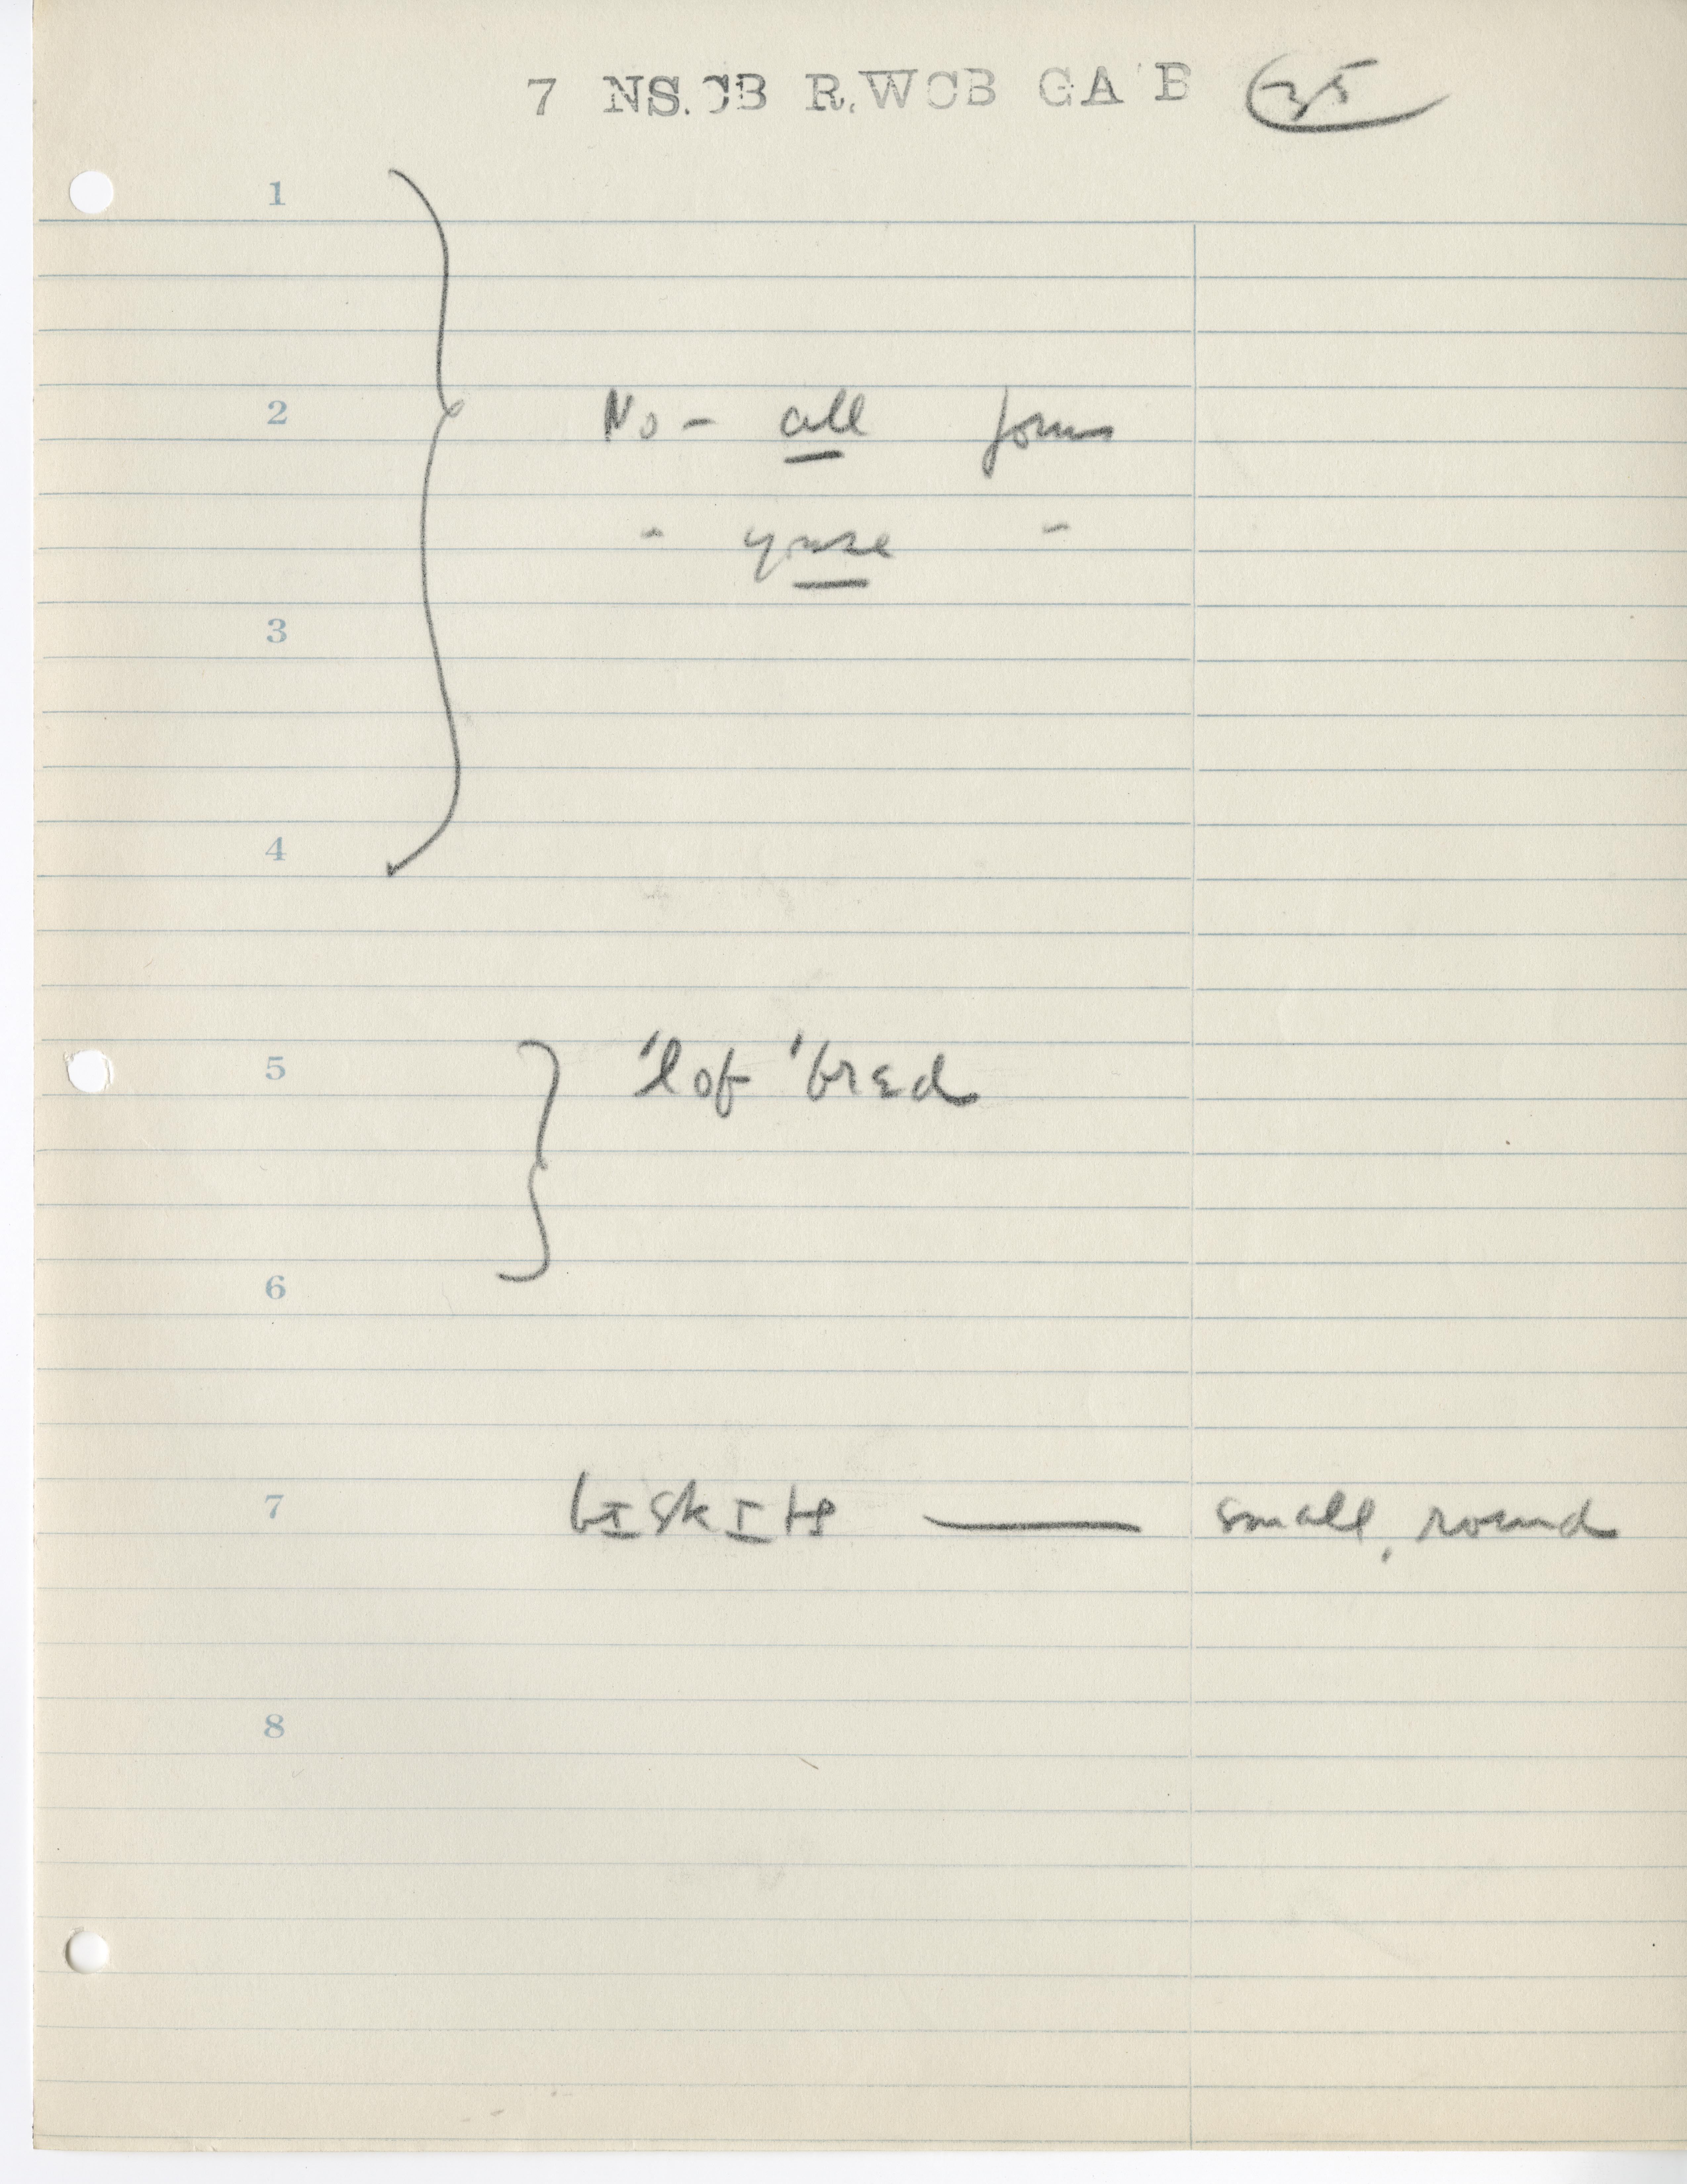 7 NS.CB R.WCB GA B 35
1
2 No - all forms
" youse "
3
4
5 'lof 'brɛd
6
7 bɪskɪts — small, round
8